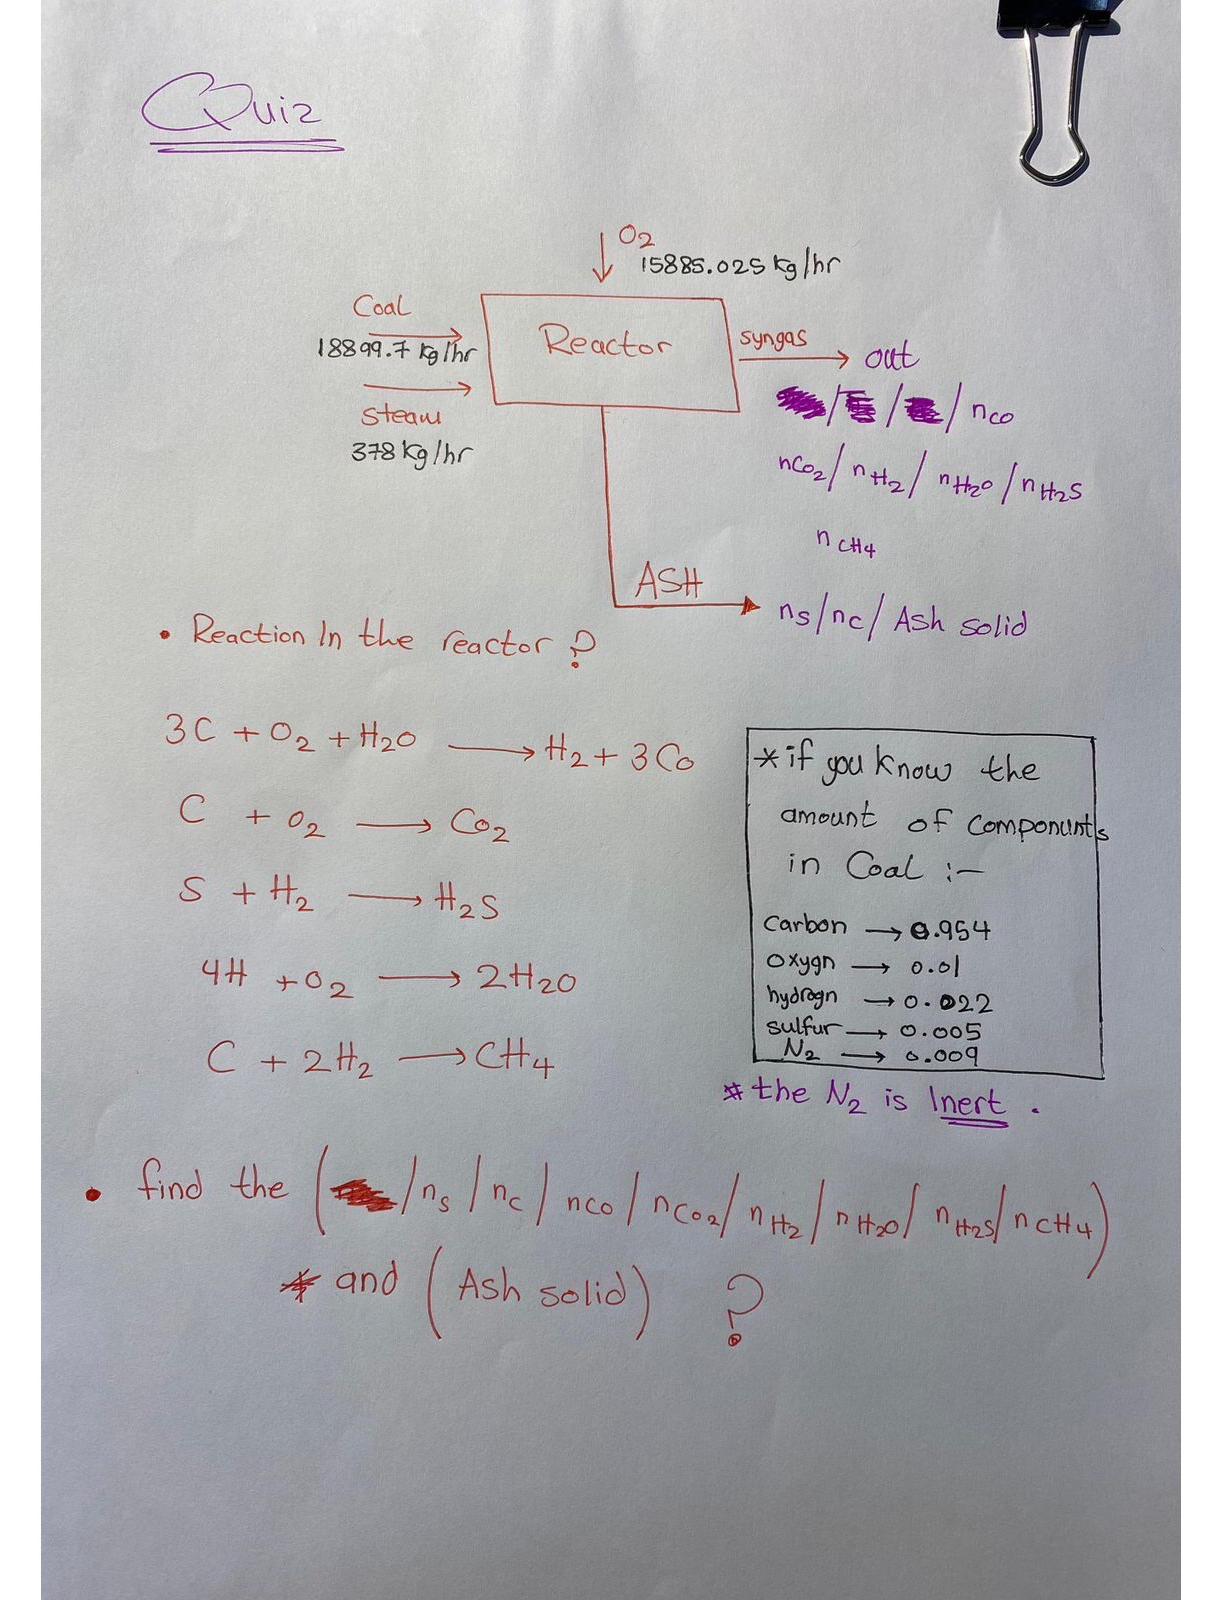 Quiz
O2
15885.025 Kg/hr
Coal
18899.7 Kg/hr
Reactor
syngas
out
steam
378 Kg/hr
/ / / nco
nCo2 / nH2 / nH2O / nH2S
nCH4
ASH
ns / nc / Ash solid
• Reaction In the reactor ?
3C + O2 + H2O → H2 + 3Co
C + O2 → CO2
S + H2 → H2S
4H + O2 → 2H2O
C + 2H2 → CH4
* if you know the
amount of componunts
in Coal :-
Carbon → 0.954
oxygn → 0.01
hydrogn → 0.022
sulfur → 0.005
N2 → 0.009
* the N2 is Inert .
• find the ( / ns / nc / nco / nCO2 / nH2 / nH2O / nH2S / nCH4 )
* and ( Ash solid ) ?